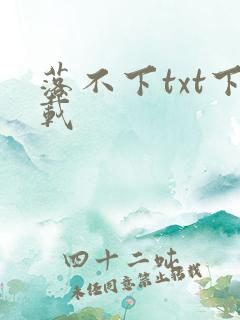 落不下txt下
载
四十二蚍
未经同意禁止转载